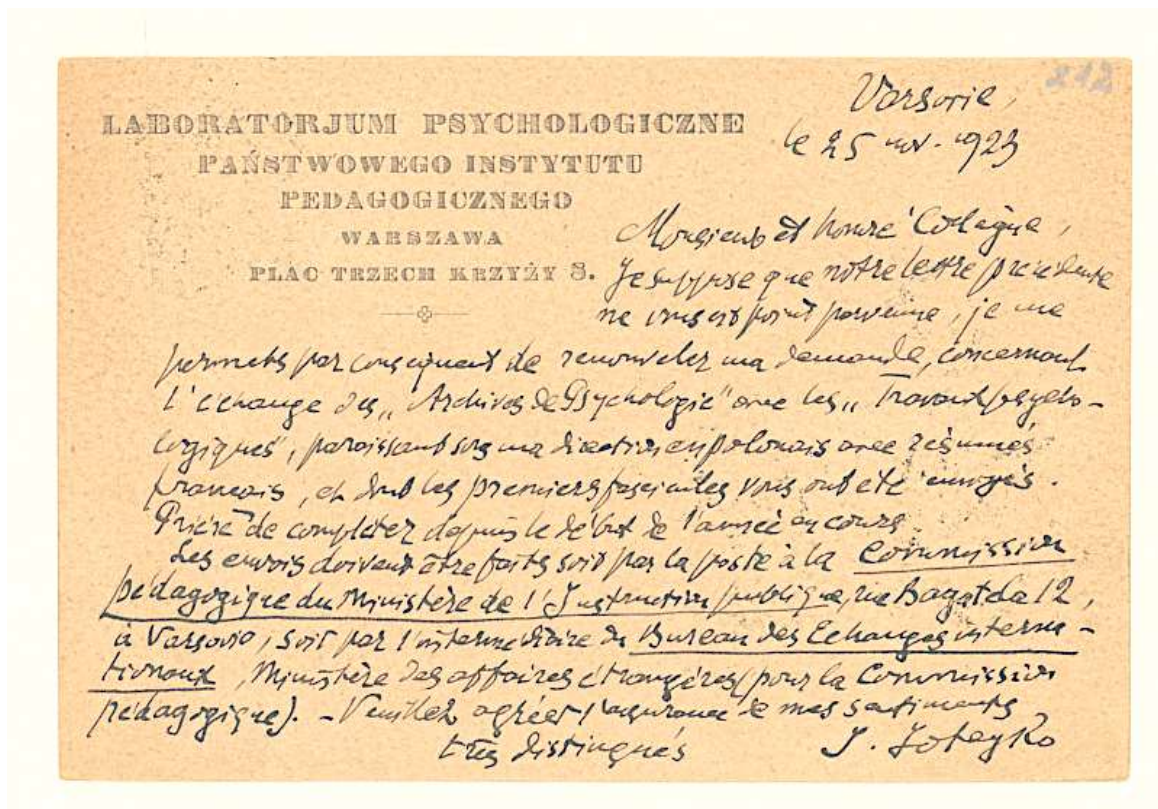 212
Varsovie,
le 25 nov. 1923
LABORATORJUM PSYCHOLOGICZNE
PAŃSTWOWEGO INSTYTUTU
PEDAGOGICZNEGO
WARSZAWA
PLAC TRZECH KRZYŻY 8.
Monsieur et honoré Collègue,
Je suppose que notre lettre précédente
ne vous est point parvenue, je me
permets par conséquent de renouveler ma demande, concernant
l'échange des „Archives de Psychologie" avec les „Travaux psycho-
logiques", paraissant sous ma direction en polonais avec résumés
français, et dont les premiers fascicules vous ont été envoyés.
Prière de compléter depuis le début de l'année en cours.
Les envois doivent être faits soit par la poste à la Commission
pédagogique du Ministère de l'Instruction publique, rue Bagatela 12,
à Varsovie, soit par l'intermédiaire du Bureau des Echanges interna-
tionaux, Ministère des affaires étrangères (pour la Commission
pédagogique). - Veuillez agréer l'assurance de mes sentiments
très distingués
J. Joteyko